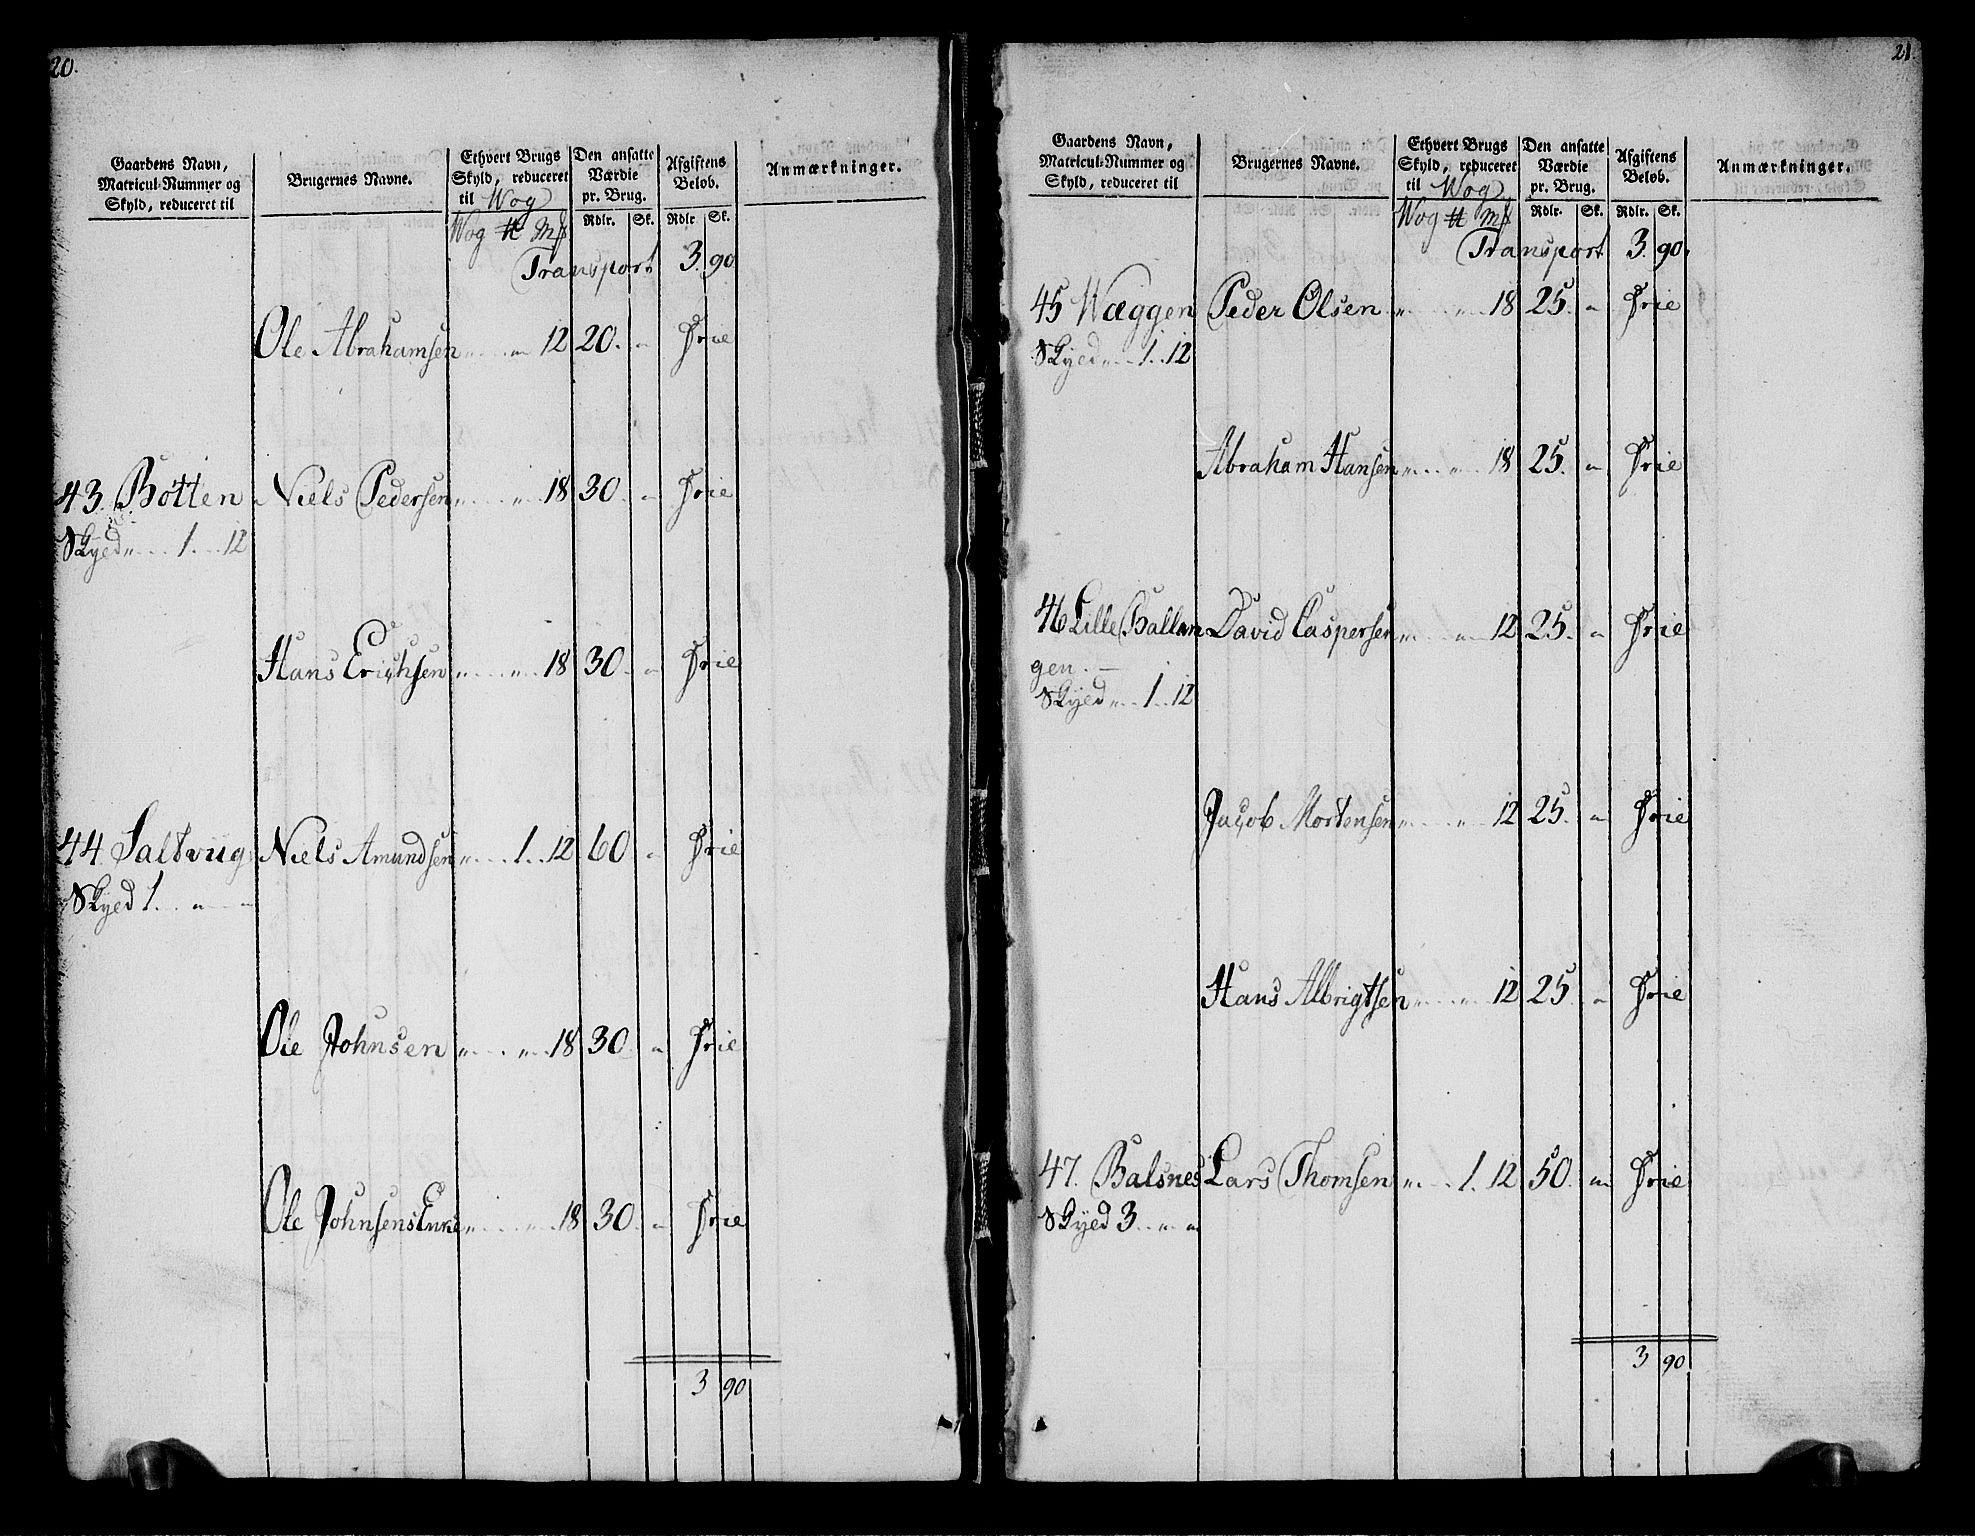 20.
Gaardens Navn, Matricul-Nummer og Skyld, reduceret til
Brugernes Navne.
Ethvert Brugs Skyld, reduceret til Wog
Den ansatte Værdie pr. Brug.
Afgiftens Belöb.
Anmærkninger.
Wog ℔ Mk Rdlr. Sk. Rdlr Sk.
Transport 3. 90
Ole Abrahamsen „ „ 12 20. „ Frie
43. Botten Niels Pedersen „ „ 18 30. „ Frie
Skyed „ 1. 12
Hans Erichsen „ „ 18 30. „ Frie
44. Saltvug Niels Amundsen „ 1. 12 60 „ Frie
Skyed 1. „ „
Ole Johnsen „ „ 18 30. „ Frie
Ole Johnsens Enke „ „ 18 30. „ Frie
3 90
21.
Gaardens Navn, Matricul-Nummer og Skyld, reduceret til
Brugernes Navne.
Ethvert Brugs Skyld, reduceret til Wog
Den ansatte Værdie pr. Brug.
Afgiftens Belöb.
Anmærkninger.
Wog ℔ Mk Rdlr. Sk. Rdlr. Sk.
Transport 3. 90.
45 Wæggen Peder Olsen „ „ 18 25. „ Frie
Skyed „ 1. 12
Abraham Hansen „ „ 18 25. „ Frie
46 Lille Ballan David Caspersen „ „ 12 25. „ Frie
gen. —
Skyed „ 1. 12
Jacob Mortensen „ „ 12 25. „ Frie
Hans Albrigtsen „ „ 12 25. „ Frie
47. Balsnes Lars Thomsen „ 1. 12 50. „ Frie
Skyed 3. „ „
3 90